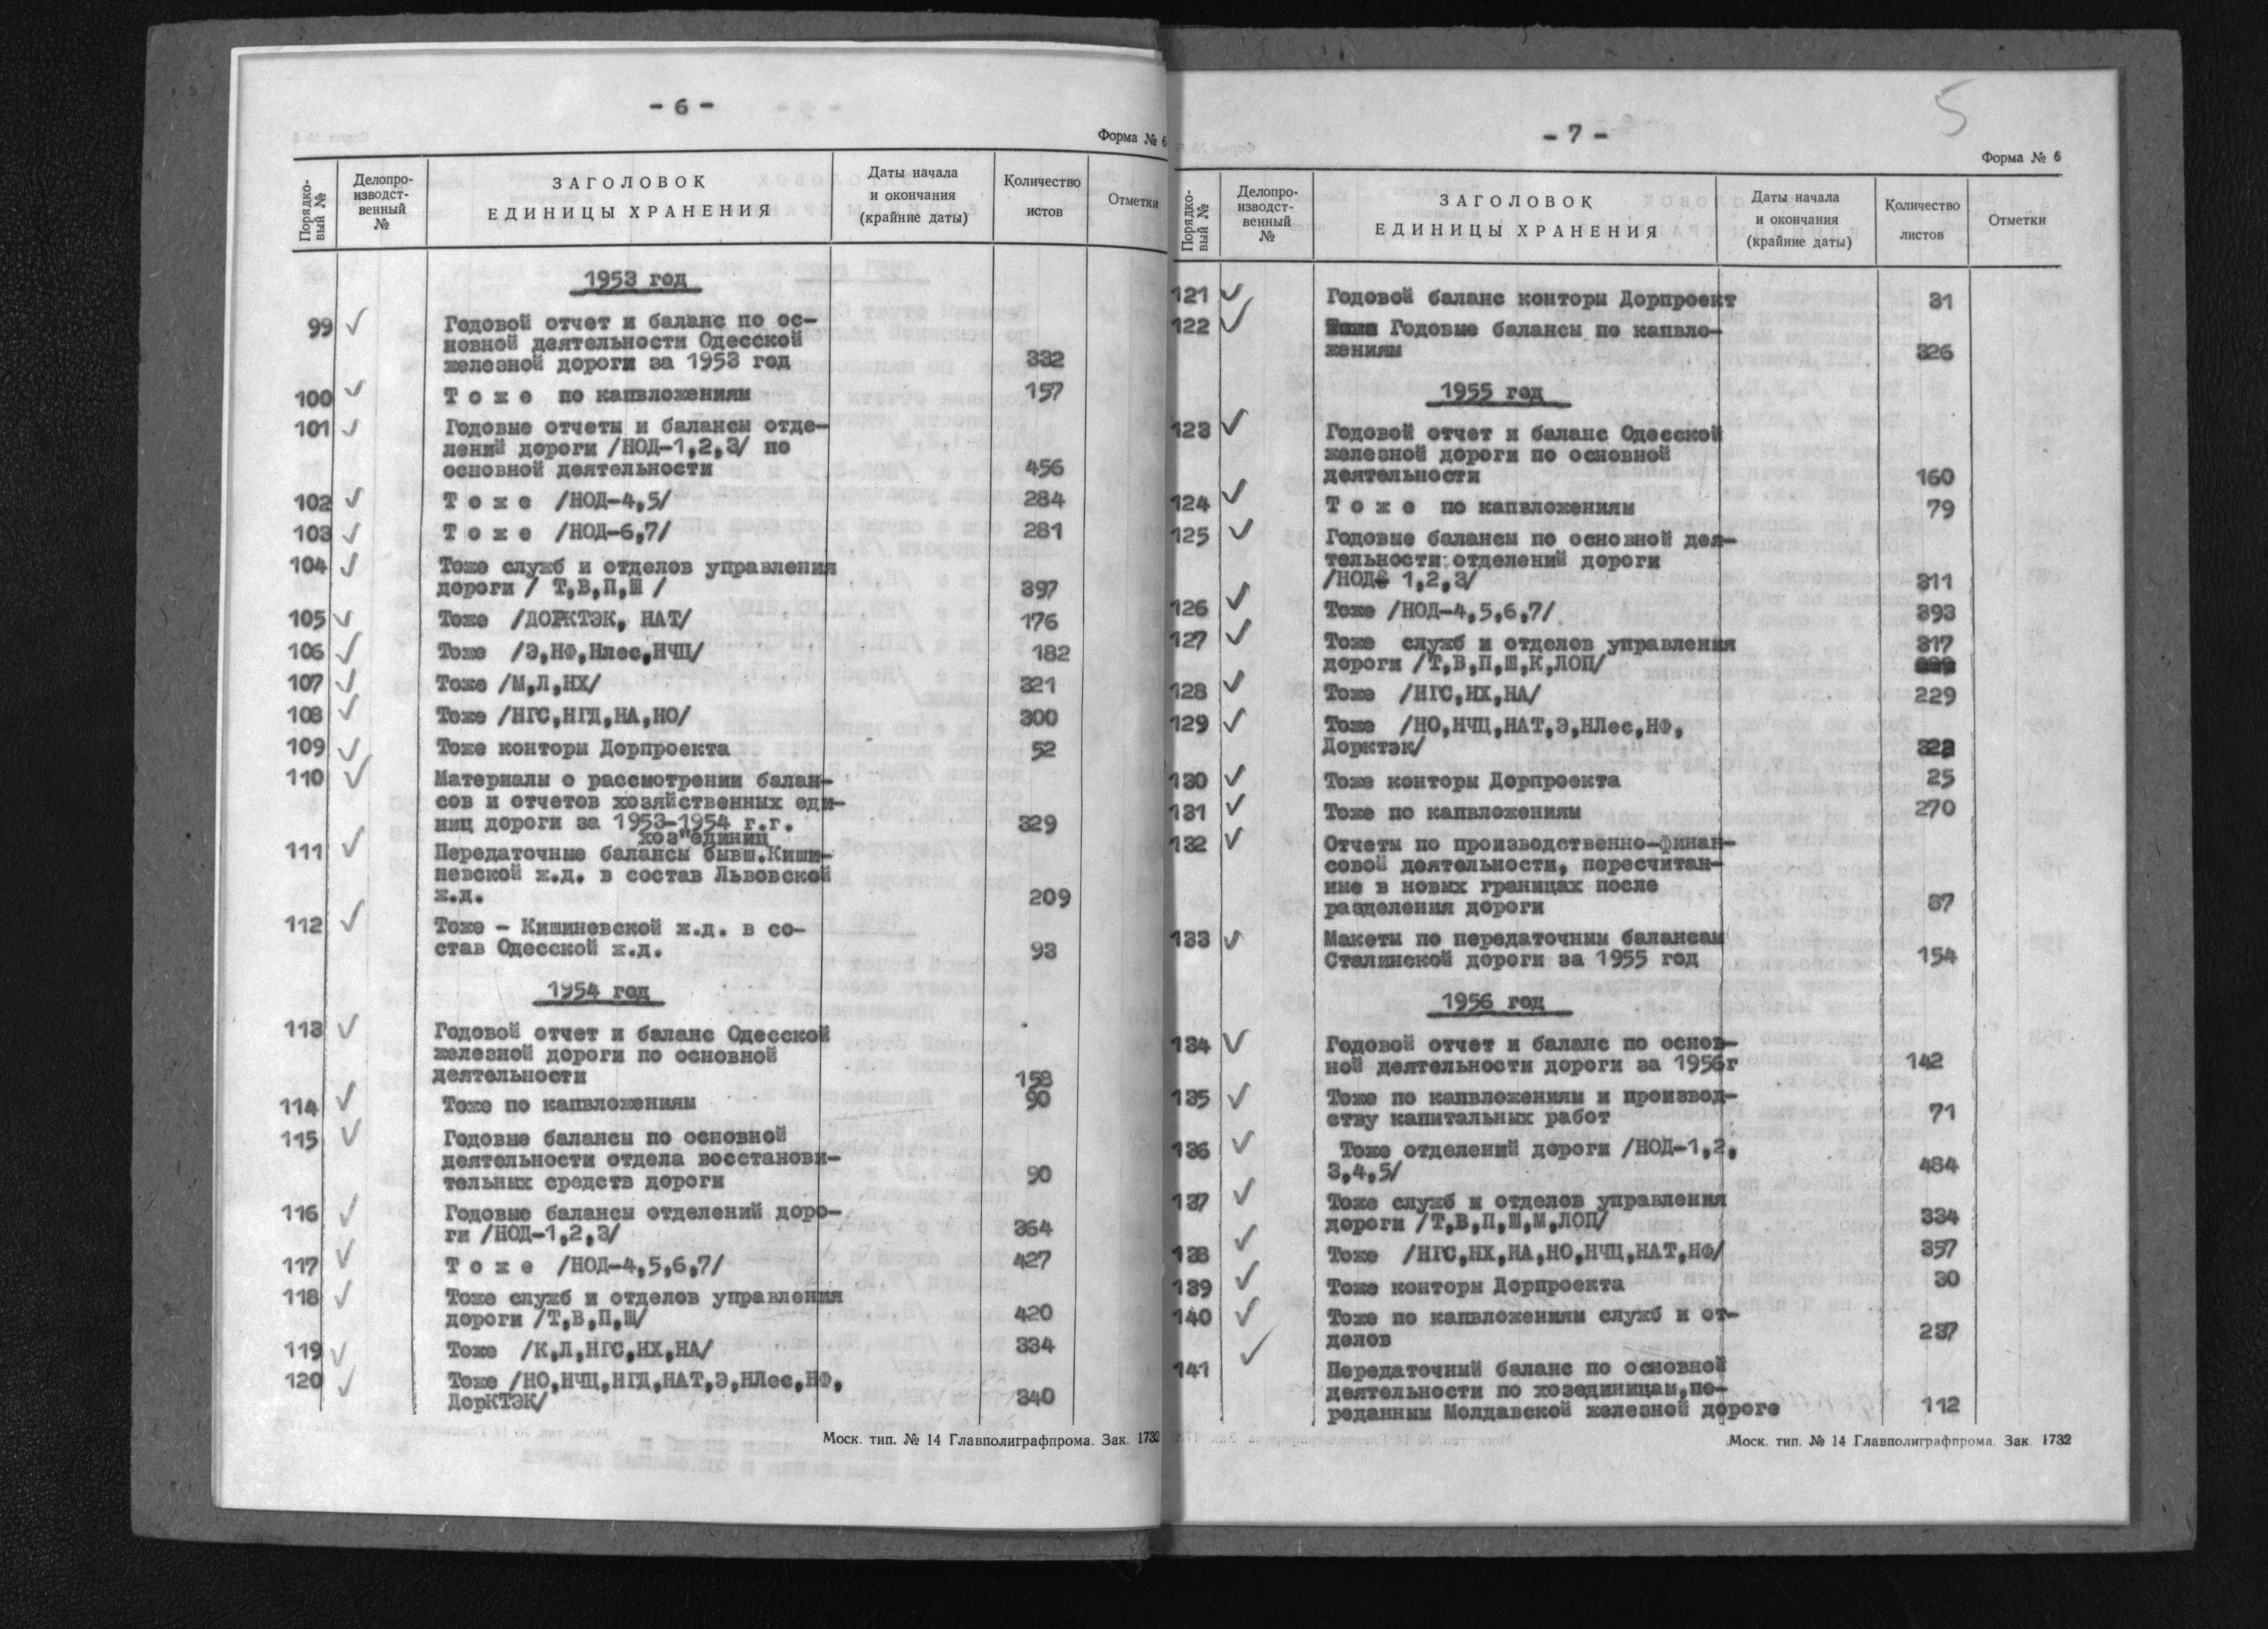 - 6 -
Форма № 6
Порядко-
вый №
Делопро-
изводст-
венный
№
ЗАГОЛОВОК
ЕДИНИЦЫ ХРАНЕНИЯ
Даты начала
и окончания
(крайние даты)
Количество
истов
Отметки
1953 год
99 Годовой отчет и баланс по ос-
новной деятельности Одесской
железной дороги за 1953 год 332
100 Т о ж е по капвложениям 157
101 Годовые отчеты и балансы отде-
лений дороги /НОД-1,2,3/ по
основной деятельности 456
102 Т о ж е /НОД-4,5/ 284
103 Т о ж е /НОД-6,7/ 281
104 Тоже служб и отделов управления
дороги / Т,В,П,Ш / 397
105 Тоже /ДОРКТЭК, НАТ/ 176
106 Тоже /Э,НФ,Нлес,НЧЦ/ 182
107 Тоже /М,Л,НХ/ 321
108 Тоже /НГС,НГД,НА,НО/ 300
109 Тоже конторы Дорпроекта 52
110 Материалы о рассмотрении балан-
сов и отчетов хозяйственных еди-
ниц дороги за 1953-1954 г.г. 329
хоз"единиц
111 Передаточные балансы бывш.Киши-
невской ж.д. в состав Львовской
ж.д. 209
112 Тоже - Кишиневской ж.д. в со-
став Одесской ж.д. 93
1954 год
113 Годовой отчет и баланс Одесской
железной дороги по основной
деятельности 158
114 Тоже по капвложениям 90
115 Годовые балансы по основной
деятельности отдела восстанови-
тельных средств дороги 90
116 Годовые балансы отделений доро-
ги /НОД-1,2,3/ 364
117 Т о ж е /НОД-4,5,6,7/ 427
118 Тоже служб и отделов управления
дороги /Т,В,П,Щ/ 420
119 Тоже /К,Л,НГС,НХ,НА/ 334
120 Тоже /НО,НЧЦ,НГД,НАТ,Э,НЛес,НФ,
ДорКТЭК/ 340
Моск. тип. № 14 Главполиграфпрома. Зак. 1732
5
- 7 -
Форма № 6
Порядко-
вый №
Делопро-
изводст-
венный
№
ЗАГОЛОВОК
ЕДИНИЦЫ ХРАНЕНИЯ
Даты начала
и окончания
(крайние даты)
Количество
листов
Отметки
121 Годовой баланс конторы Дорпроект 31
122 Годовые балансы по капвло-
жениям 326
1955 год
123 Годовой отчет и баланс Одесской
железной дороги по основной
деятельности 160
124 Т о ж е по капвложениям 79
125 Годовые балансы по основной дея-
тельности отделений дороги
/НОД 1,2,3/ 311
126 Тоже /НОД-4,5,6,7/ 393
127 Тоже служб и отделов управления 317
дороги /Т,В,П,Ш,К,ЛОП/
128 Тоже /НГС,НХ,НА/ 229
129 Тоже /НО,НЧЦ,НАТ,Э,НЛес,НФ,
Дорктэк/
130 Тоже конторы Дорпроекта 25
131 Тоже по капвложениям 270
132 Отчеты по производственно-финан-
совой деятельности, пересчитан-
ные в новых границах после
разделения дороги 87
133 Макеты по передаточным балансам
Сталинской дороги за 1955 год 154
1956 год
134 Годовой отчет и баланс по основ-
ной деятельности дороги за 1956г 142
135 Тоже по капвложениям и производ-
ству капитальных работ 71
136 Тоже отделений дороги /НОД-1,2,
3,4,5/ 484
137 Тоже служб и отделов управления
дороги /Т,В,П,Ш,М,ЛОП/ 334
138 Тоже /НГС,НХ,НА,НО,НЧЦ,НАТ,НФ/ 357
139 Тоже конторы Дорпроекта 30
140 Тоже по капвложениям служб и от-
делов 237
141 Передаточный баланс по основной
деятельности по хозединицам,пе-
реданным Молдавской железной дороге 112
Моск. тип. № 14 Главполиграфпрома. Зак. 1732